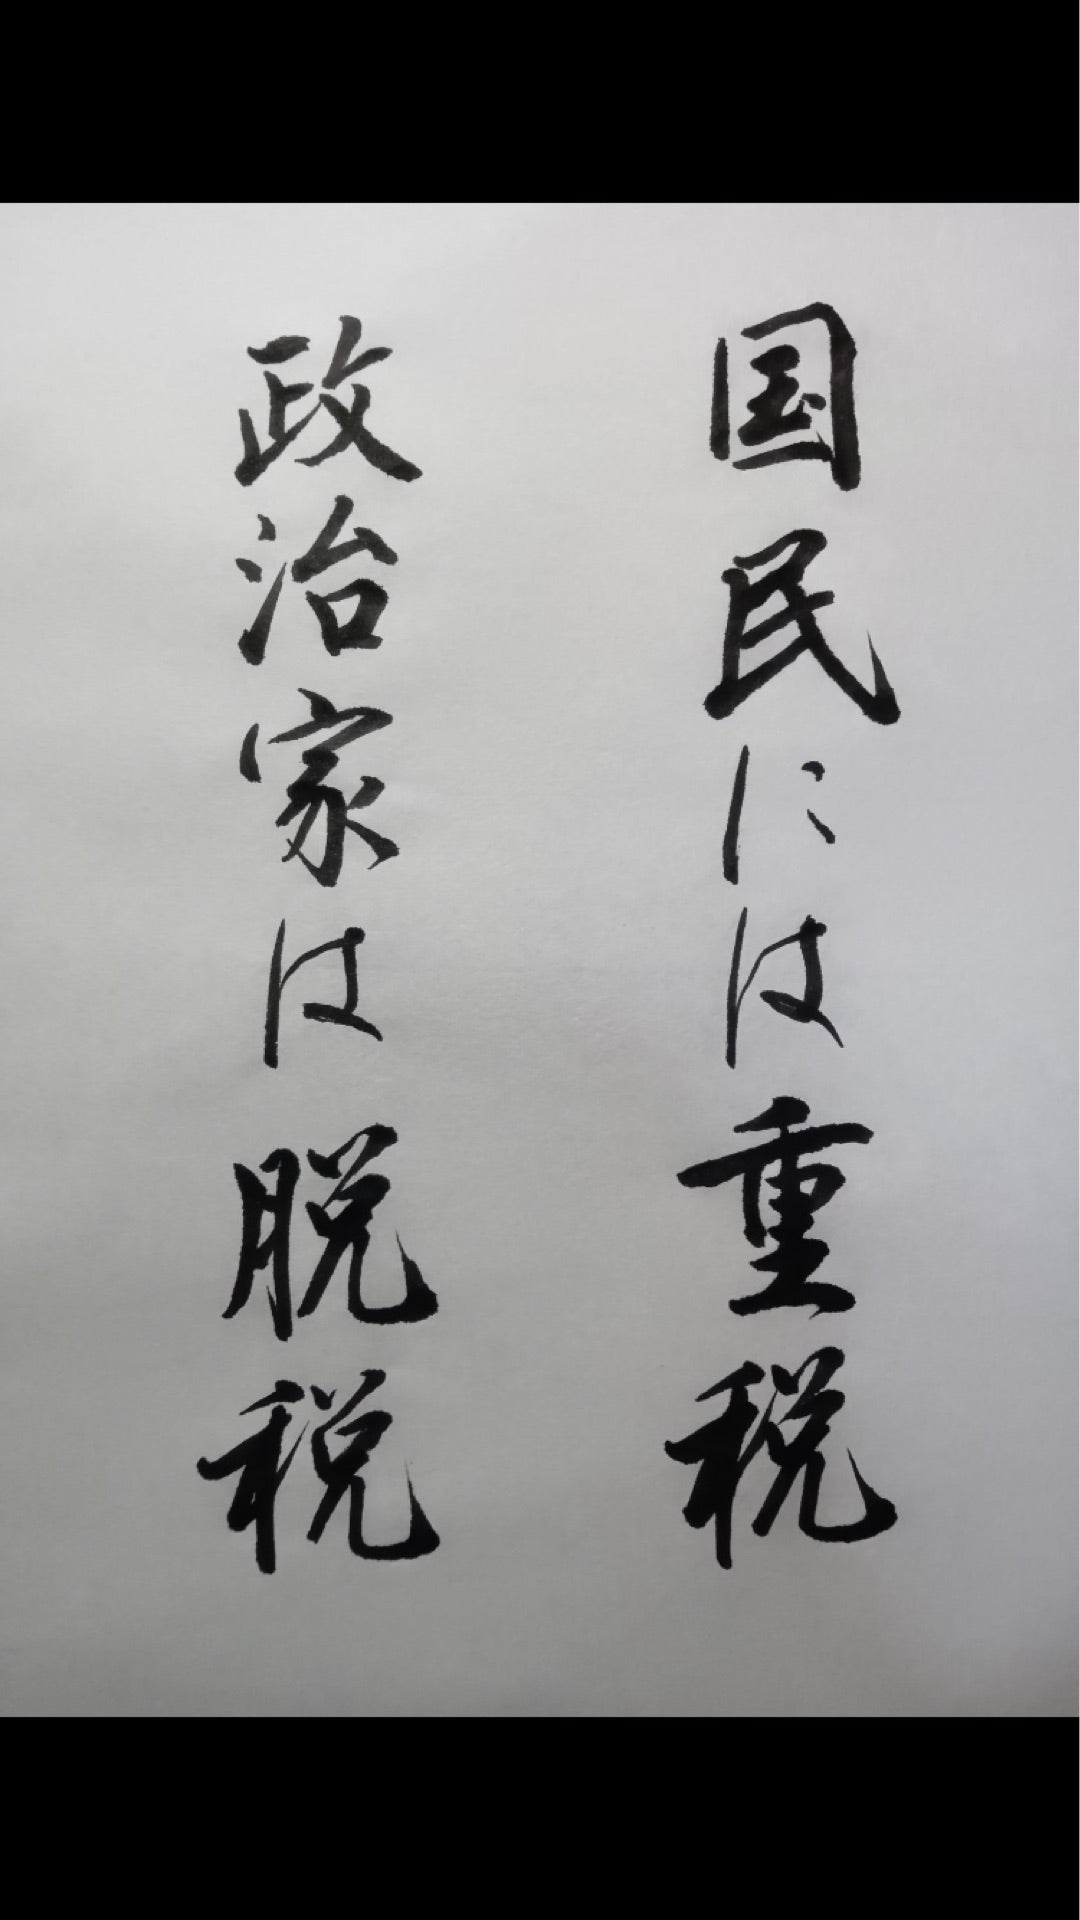 国民には重税
政治家は脱税